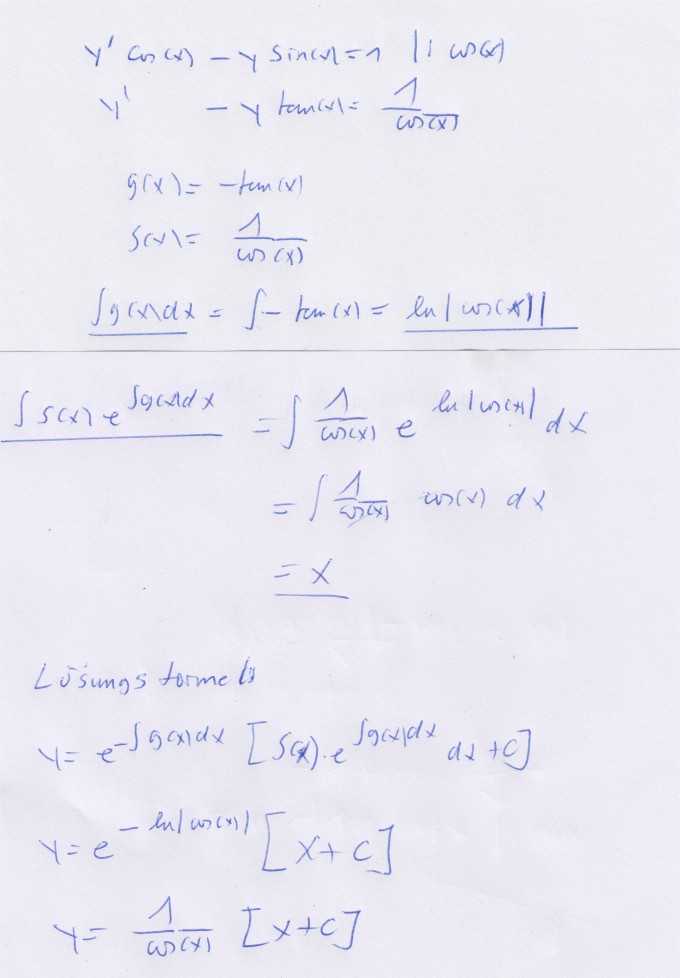 y' cos(x) - y sin(x) = 1 |: cos(x)
y' - y tan(x) = 1/cos(x)
g(x) = -tan(x)
s(x) = 1/cos(x)
∫g(x)dx = ∫- tan(x) = ln|cos(x)|
∫s(x) e^∫g(x)dx = ∫ 1/cos(x) e^ln|cos(x)| dx
= ∫ 1/cos(x) cos(x) dx
= x
Lösungsformel:
y = e^-∫g(x)dx [∫s(x)·e^∫g(x)dx dx + C]
y = e^-ln|cos(x)| [x+C]
y = 1/cos(x) [x+C]